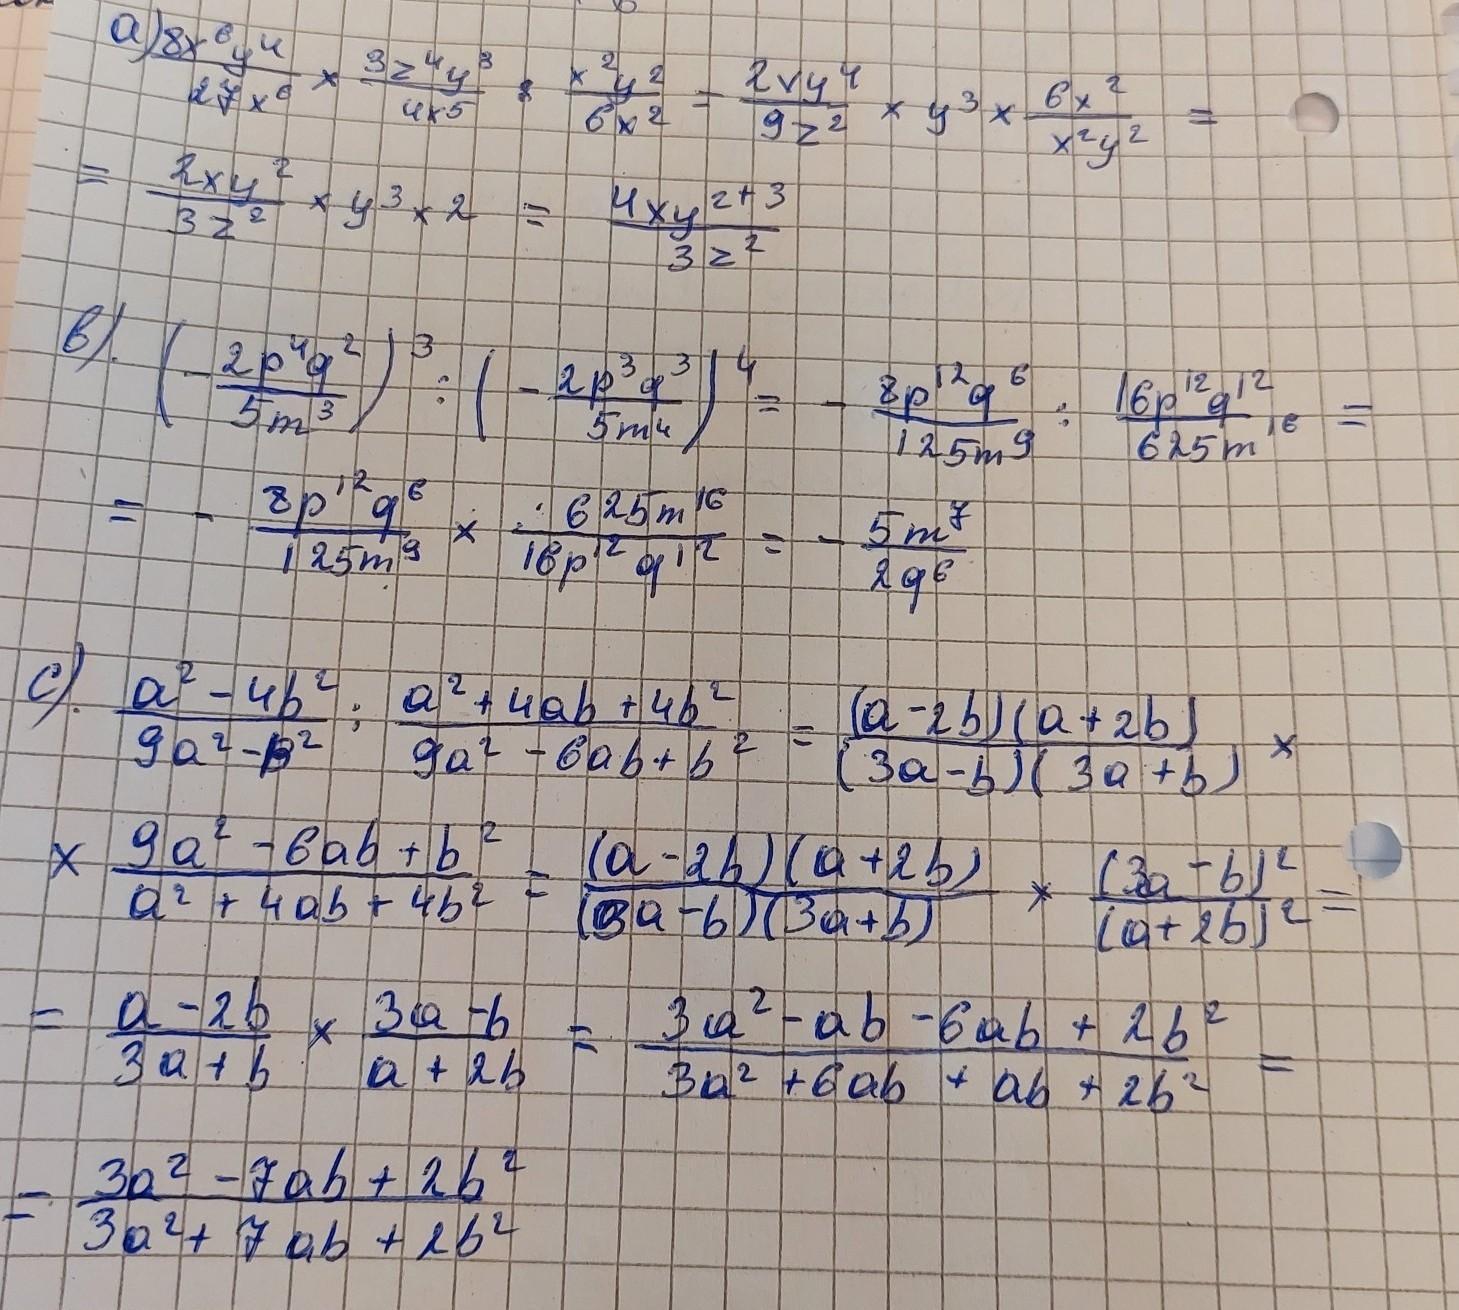 a) 8x⁶y⁴/27x⁶ × 3z⁴y³/4x5 : x²y²/6x² = 2xy⁴/9z² × y³ × 6x²/x²y² =
= 2xy²/3z² × y³ × 2 = 4xy²⁺³/3z²
b). (- 2p⁴q²/5m³)³ : (- 2p³q³/5m⁴)⁴ = - 8p¹²q⁶/125m⁹ : 16p¹²q¹²/625m¹⁶ =
= - 8p¹²q⁶/125m⁹ × 625m¹⁶/16p¹²q¹² = - 5m⁷/2q⁶
c). a² - 4b²/9a² - b² : a² + 4ab + 4b²/9a² - 6ab + b² = (a - 2b)(a + 2b)/(3a - b)(3a + b) ×
× 9a² - 6ab + b²/a² + 4ab + 4b² = (a - 2b)(a + 2b)/(3a - b)(3a + b) × (3a - b)²/(a + 2b)² =
= a - 2b/3a + b × 3a - b/a + 2b = 3a² - ab - 6ab + 2b²/3a² + 6ab + ab + 2b² =
= 3a² - 7ab + 2b²/3a² + 7ab + 2b²